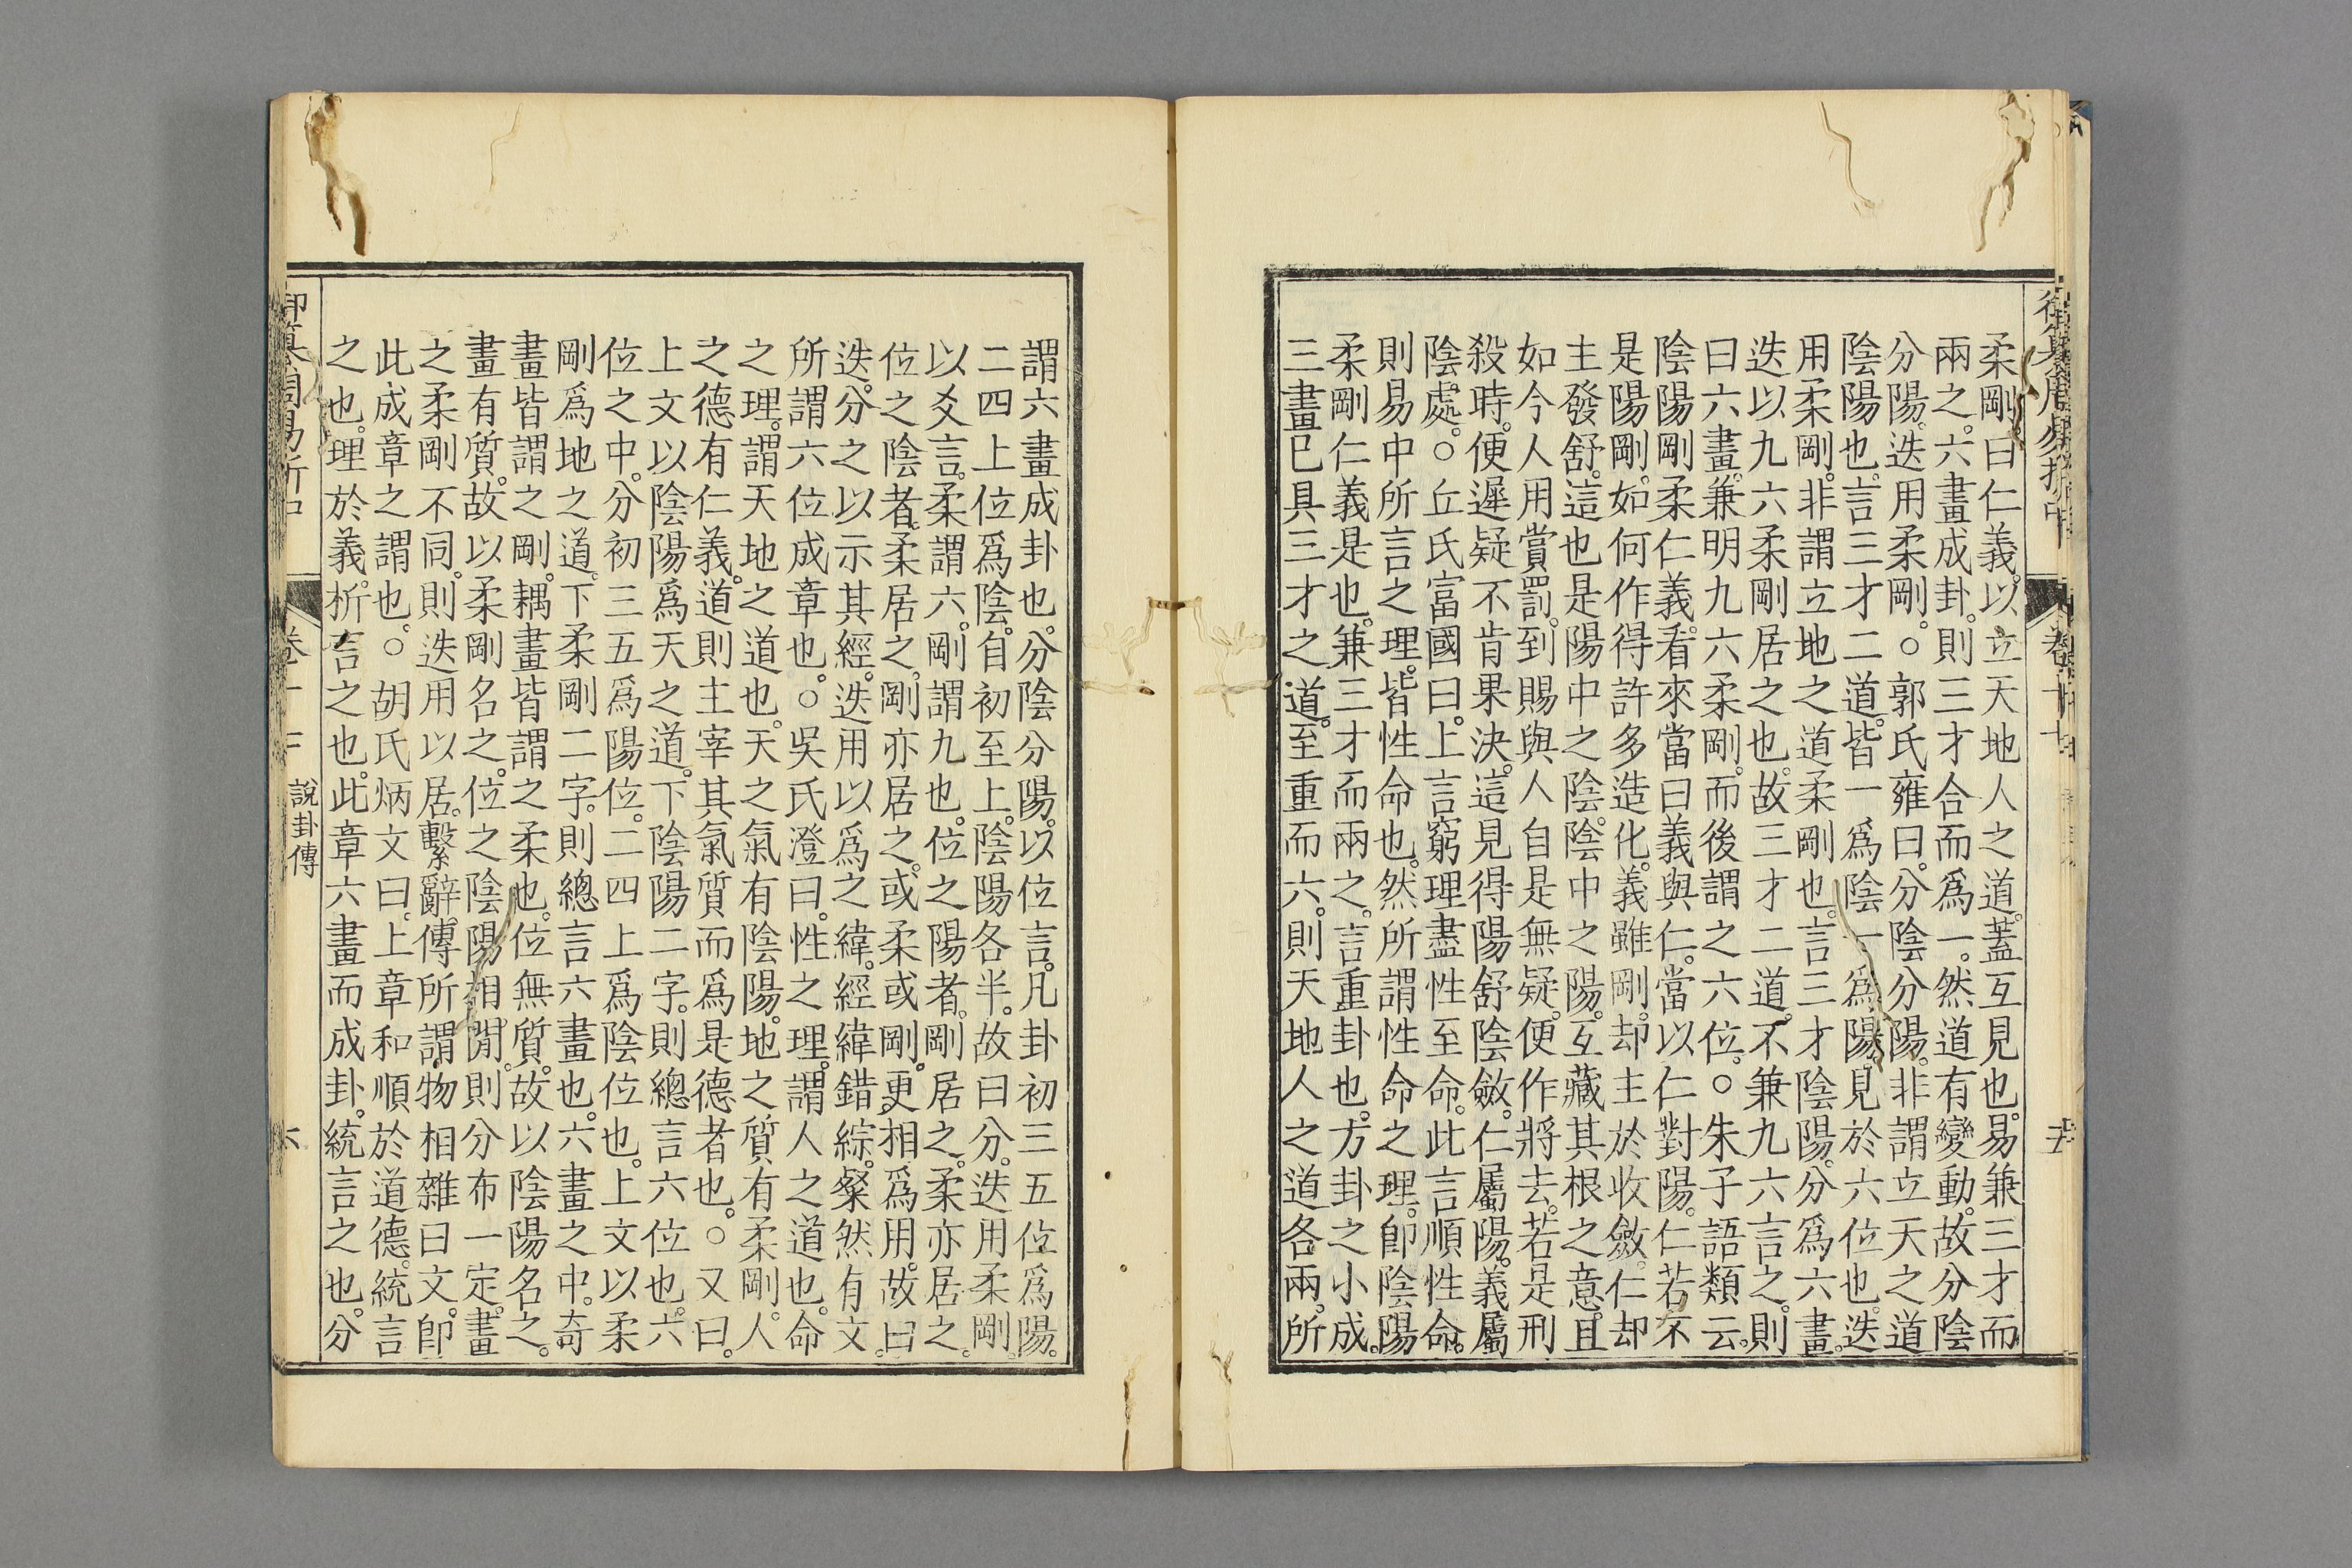 柔剛曰仁義。以立天地人之道。蓋互見也。易兼三才而
兩之。六畫成卦。則三才合而爲一。然道有變動。故分陰
分陽。迭用柔剛。○郭氏雍曰。分陰分陽。非謂立天之道
陰陽也。言三才二道。皆一爲陰一爲陽。見於六位也。迭
用柔剛。非謂立地之道柔剛也。言三才陰陽。分爲六畫。
迭以九六柔剛居之也。故三才二道。不兼九六言之。則
曰六畫。兼明九六柔剛。而後謂之六位。○朱子語類云。
陰陽剛柔仁義。看來當曰義與仁。當以仁對陽。仁若不
是陽剛。如何作得許多造化。義雖剛。却主於收斂。仁却
主發舒。這也是陽中之陰。陰中之陽。互藏其根之意。且
如今人用賞罰。到賜與人自是無疑。便作將去。若是刑
殺時。便遲疑不肯果決。這見得陽舒陰斂。仁屬陽。義屬
陰處。○丘氏富國曰。上言窮理盡性至命。此言順性命。
則易中所言之理。皆性命也。然所謂性命之理。卽陰陽
柔剛仁義是也。兼三才而兩之。言重卦也。方卦之小成。
三畫已具三才之道。至重而六。則天地人之道各兩。所
謂六畫成卦也。分陰分陽。以位言。凡卦初三五位爲陽。
二四上位爲陰。自初至上。陰陽各半。故曰分。迭用柔剛。
以爻言。柔謂六。剛謂九也。位之陽者。剛居之。柔亦居之。
位之陰者。柔居之。剛亦居之。或柔或剛。更相爲用。故曰
迭。分之以示其經。迭用以爲之緯。經緯錯綜。粲然有文。
所謂六位成章也。○吳氏澄曰。性之理。謂人之道也。命
之理。謂天地之道也。天之氣有陰陽。地之質有柔剛。人
之德有仁義。道則主宰其氣質而爲是德者也。○又曰。
上文以陰陽爲天之道。下陰陽二字。則總言六位也。六
位之中。分初三五爲陽位。二四上爲陰位也。上文以柔
剛爲地之道。下柔剛二字。則總言六畫也。六畫之中。奇
畫皆謂之剛。耦畫皆謂之柔也。位無質。故以陰陽名之。
畫有質。故以柔剛名之。位之陰陽相閒。則分布一定。畫
之柔剛不同。則迭用以居。繫辭。傳所謂物相雜曰文。卽
此成章之謂也。○胡氏炳文曰。上章和順於道德。統言
之也。理於義。析言之也。此章六畫而成卦。統言之也。分
說卦傳